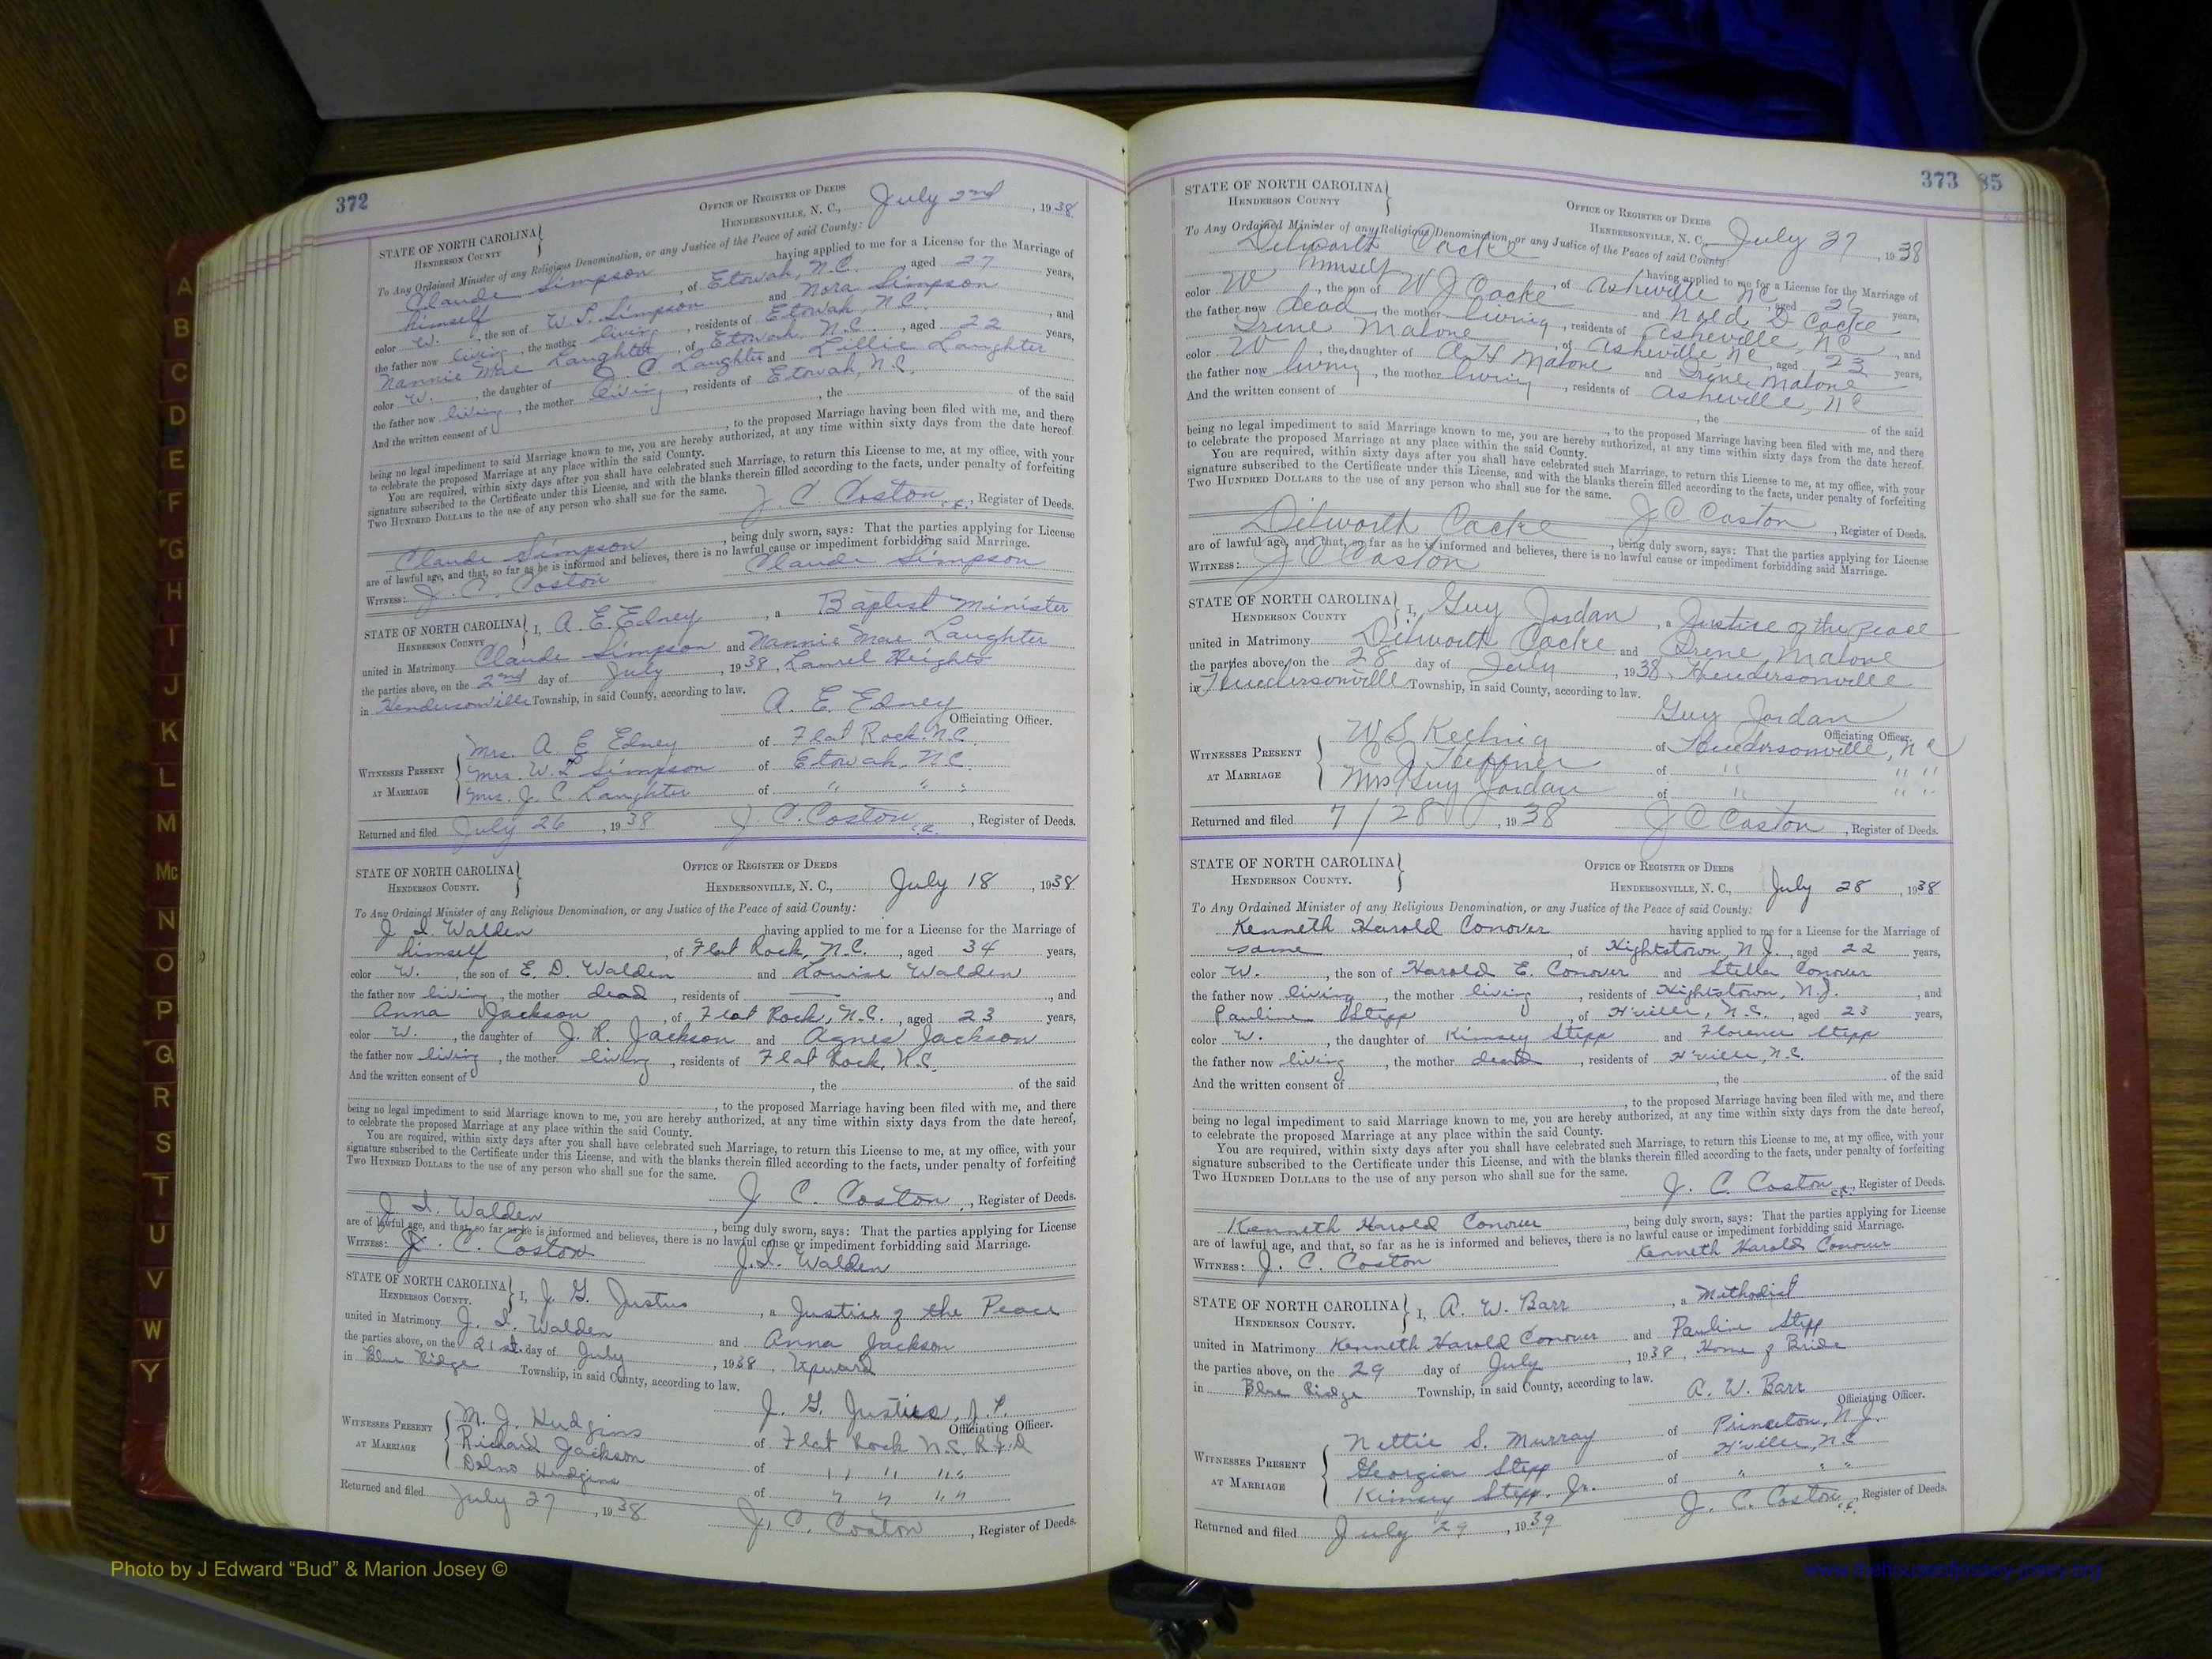 372
STATE OF NORTH CAROLINA
HENDERSON COUNTY
OFFICE OF REGISTER OF DEEDS
HENDERSONVILLE, N. C., July 2nd, 1938
To Any Ordained Minister of any Religious Denomination, or any Justice of the Peace of said County:
Claude Simpson having applied to me for a License for the Marriage of
himself, of Etowah, N.C., aged 27 years,
color W., the son of W. P. Simpson and Nora Simpson
the father now living, the mother living, residents of Etowah, N.C., and
Nannie Mae Laughter, of Etowah, N.C., aged 22 years,
color W., the daughter of J. C. Laughter and Lillie Laughter
the father now living, the mother living, residents of Etowah, N.C.
And the written consent of , the of the said
, to the proposed Marriage having been filed with me, and there
being no legal impediment to said Marriage known to me, you are hereby authorized, at any time within sixty days from the date hereof,
to celebrate the proposed Marriage at any place within the said County.
You are required, within sixty days after you shall have celebrated such Marriage, to return this License to me, at my office, with your
signature subscribed to the Certificate under this License, and with the blanks therein filled according to the facts, under penalty of forfeiting
TWO HUNDRED DOLLARS to the use of any person who shall sue for the same.
J. C. Coston, Register of Deeds.
Claude Simpson, being duly sworn, says: That the parties applying for License
are of lawful age, and that, so far as he is informed and believes, there is no lawful cause or impediment forbidding said Marriage.
WITNESS: J. C. Coston Claude Simpson
STATE OF NORTH CAROLINA
HENDERSON COUNTY
I, A. E. Edney, a Baptist Minister
united in Matrimony Claude Simpson and Nannie Mae Laughter
the parties above, on the 2nd day of July, 1938, Laurel Heights
in Hendersonville Township, in said County, according to law.
A. E. Edney
Officiating Officer.
WITNESSES PRESENT AT MARRIAGE
Mrs. A. E. Edney of Flat Rock N.C.
Mrs. W. P. Simpson of Etowah, N.C.
Mrs. J. C. Laughter of " " "
Returned and filed July 26, 1938 J. C. Coston, Register of Deeds.
STATE OF NORTH CAROLINA
HENDERSON COUNTY.
OFFICE OF REGISTER OF DEEDS
HENDERSONVILLE, N. C., July 18, 1938
To Any Ordained Minister of any Religious Denomination, or any Justice of the Peace of said County:
J. I. Walden having applied to me for a License for the Marriage of
himself, of Flat Rock, N.C., aged 34 years,
color W., the son of E. D. Walden and Louise Walden
the father now living, the mother dead, residents of —, and
Anna Jackson, of Flat Rock, N.C., aged 23 years,
color W., the daughter of J. R. Jackson and Agnes Jackson
the father now living, the mother living, residents of Flat Rock, N.C.
And the written consent of , the of the said
, to the proposed Marriage having been filed with me, and there
being no legal impediment to said Marriage known to me, you are hereby authorized, at any time within sixty days from the date hereof,
to celebrate the proposed Marriage at any place within the said County.
You are required, within sixty days after you shall have celebrated such Marriage, to return this License to me, at my office, with your
signature subscribed to the Certificate under this License, and with the blanks therein filled according to the facts, under penalty of forfeiting
TWO HUNDRED DOLLARS to the use of any person who shall sue for the same.
J. C. Coston, Register of Deeds.
J. I. Walden, being duly sworn, says: That the parties applying for License
are of lawful age, and that, so far as he is informed and believes, there is no lawful cause or impediment forbidding said Marriage.
WITNESS: J. C. Coston J. I. Walden
STATE OF NORTH CAROLINA
HENDERSON COUNTY.
I, J. G. Justus, a Justice of the Peace
united in Matrimony J. I. Walden and Anna Jackson
the parties above, on the 21st day of July, 1938, Upward
in Blue Ridge Township, in said County, according to law.
J. G. Justice, J.P.
Officiating Officer.
WITNESSES PRESENT AT MARRIAGE
M. J. Hudgins of Flat Rock N.C. R.F.D
Richard Jackson of " " "
Hudgins of " " "
Returned and filed July 27, 1938 J. C. Coston, Register of Deeds.
373 85
STATE OF NORTH CAROLINA
HENDERSON COUNTY
OFFICE OF REGISTER OF DEEDS
HENDERSONVILLE, N. C., July 27, 1938
To Any Ordained Minister of any Religious Denomination, or any Justice of the Peace of said County:
Dilworth Cocke having applied to me for a License for the Marriage of
himself, of Asheville NC, aged 26 years,
color W, the son of W J Cocke and D Cocke
the father now dead, the mother living, residents of Asheville, NC, and
Irene Malone, of Asheville NC, aged 23 years,
color W, the daughter of A H Malone and Irene Malone
the father now living, the mother living, residents of Asheville, NC
And the written consent of , the of the said
, to the proposed Marriage having been filed with me, and there
being no legal impediment to said Marriage known to me, you are hereby authorized, at any time within sixty days from the date hereof.
to celebrate the proposed Marriage at any place within the said County.
You are required, within sixty days after you shall have celebrated such Marriage, to return this License to me, at my office, with your
signature subscribed to the Certificate under this License, and with the blanks therein filled according to the facts, under penalty of forfeiting
TWO HUNDRED DOLLARS to the use of any person who shall sue for the same.
J C Coston, Register of Deeds.
Dilworth Cocke, being duly sworn, says: That the parties applying for License
are of lawful age, and that, so far as he is informed and believes, there is no lawful cause or impediment forbidding said Marriage.
WITNESS: J C Coston
STATE OF NORTH CAROLINA
HENDERSON COUNTY
I, Guy Jordan, a Justice of the Peace
united in Matrimony Dilworth Cocke and Irene Malone
the parties above, on the 28 day of July, 1938, Hendersonville
in Hendersonville Township, in said County, according to law.
Guy Jordan
Officiating Officer.
WITNESSES PRESENT AT MARRIAGE
W S of Hendersonville, NC
Heffner of " " "
Mrs Guy Jordan of " " "
Returned and filed 7/28, 1938 J C Coston, Register of Deeds.
STATE OF NORTH CAROLINA
HENDERSON COUNTY.
OFFICE OF REGISTER OF DEEDS
HENDERSONVILLE, N. C., July 28, 1938
To Any Ordained Minister of any Religious Denomination, or any Justice of the Peace of said County:
Kenneth Harold Conover having applied to me for a License for the Marriage of
same, of Hightstown, N.J., aged 22 years,
color W., the son of Harold E. Conover and Stella Conover
the father now living, the mother living, residents of Hightstown, N.J., and
Pauline Stepp, of H'ville, N.C., aged 23 years,
color W., the daughter of Kimsey Stepp and Florence Stepp
the father now living, the mother dead, residents of H'ville, N.C.
And the written consent of , the of the said
, to the proposed Marriage having been filed with me, and there
being no legal impediment to said Marriage known to me, you are hereby authorized, at any time within sixty days from the date hereof,
to celebrate the proposed Marriage at any place within the said County.
You are required, within sixty days after you shall have celebrated such Marriage, to return this License to me, at my office, with your
signature subscribed to the Certificate under this License, and with the blanks therein filled according to the facts, under penalty of forfeiting
TWO HUNDRED DOLLARS to the use of any person who shall sue for the same.
J. C. Coston, Register of Deeds.
Kenneth Harold Conover, being duly sworn, says: That the parties applying for License
are of lawful age, and that, so far as he is informed and believes, there is no lawful cause or impediment forbidding said Marriage.
WITNESS: J. C. Coston Kenneth Harold Conover
STATE OF NORTH CAROLINA
HENDERSON COUNTY.
I, A. W. Barr, a Methodist
united in Matrimony Kenneth Harold Conover and Pauline Stepp
the parties above, on the 29 day of July, 1938, Home of Bride
in Blue Ridge Township, in said County, according to law.
A. W. Barr
Officiating Officer.
WITNESSES PRESENT AT MARRIAGE
Nettie S. Murray of Princeton, N.J.
Georgia Stepp of H'ville, N.C
Kimsey Stepp, Jr. of " " "
Returned and filed July 29, 1939 J. C. Coston, Register of Deeds.
A
B
C
D
E
F
G
H
I
J
K
L
M
Mc
N
O
P
Q
R
S
T
U
V
W
Y
Photo by J Edward “Bud” & Marion Josey ©
www.thehouseofjossey-josey.org